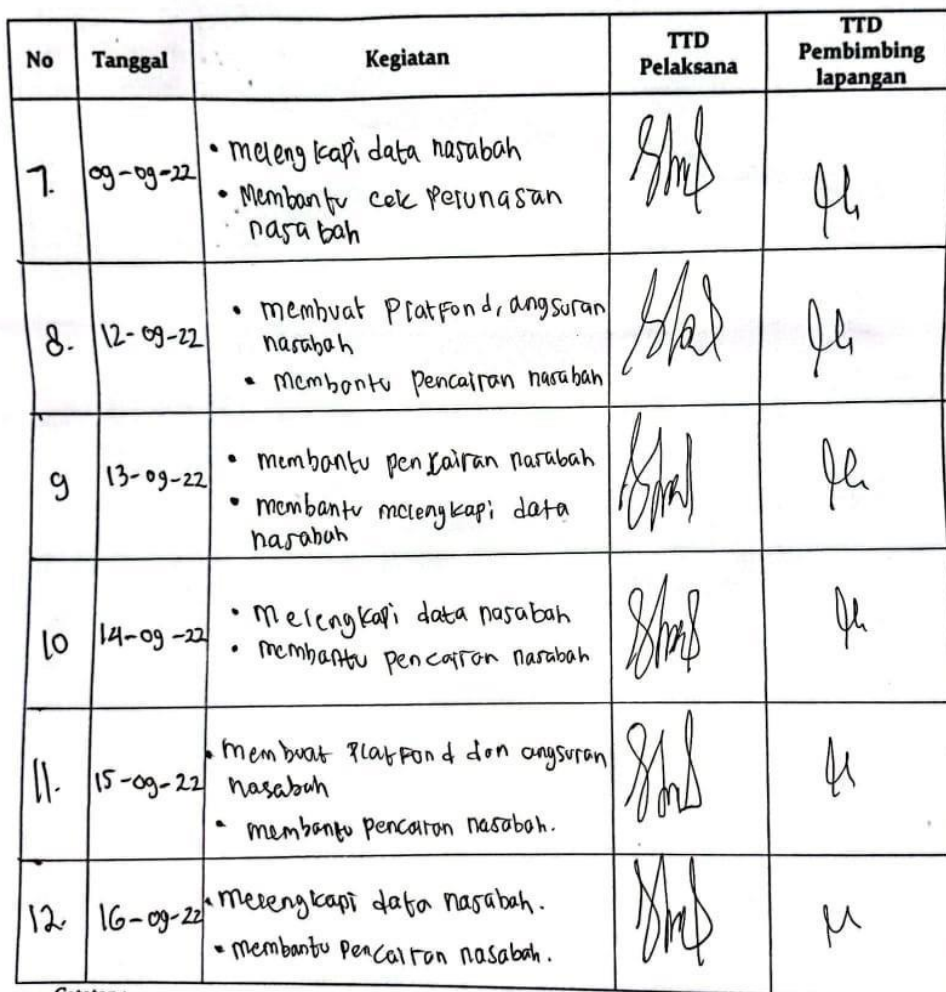 No Tanggal Kegiatan TTD Pelaksana TTD Pembimbing lapangan
7. 09-09-22
• melengkapi data nasabah
• Membantu cek Pelunasan
nasabah
8. 12-09-22
• membuat Platfond, angsuran
nasabah
• membantu pencairan nasabah
9 13-09-22
• membantu pencairan nasabah
• membantu melengkapi data
nasabah
10 14-09-22
• Melengkapi data nasabah
• membantu pencairan nasabah
11. 15-09-22
• membuat Platfond dan angsuran
nasabah
• membantu pencairan nasabah.
12. 16-09-22
• melengkapi data nasabah.
• membantu pencairan nasabah.